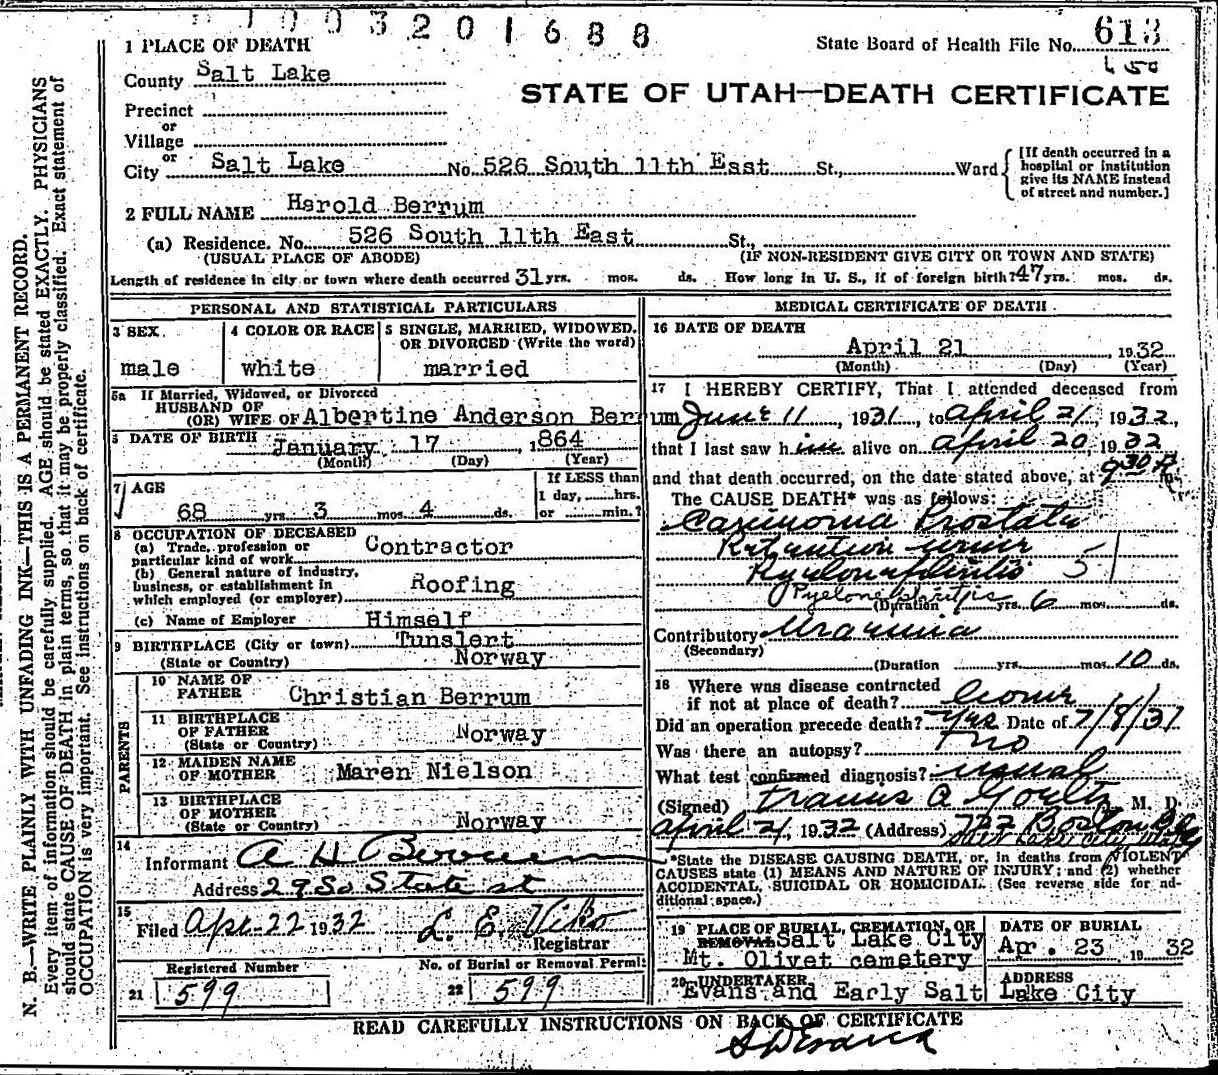 1003201688
1 PLACE OF DEATH
State Board of Health File No. 613
County Salt Lake
STATE OF UTAH—DEATH CERTIFICATE
Precinct
or
Village
or
City Salt Lake No. 526 South 11th East St., Ward
[If death occurred in a
hospital or institution
give its NAME instead
of street and number.]
2 FULL NAME Harold Berrum
(a) Residence. No. 526 South 11th East St.,
(USUAL PLACE OF ABODE) (IF NON-RESIDENT GIVE CITY OR TOWN AND STATE)
Length of residence in city or town where death occurred 31 yrs. mos. ds. How long in U. S., if of foreign birth? 47 yrs. mos. ds.
PERSONAL AND STATISTICAL PARTICULARS
3 SEX
male
4 COLOR OR RACE
white
5 SINGLE, MARRIED, WIDOWED,
OR DIVORCED (Write the word)
married
5a If Married, Widowed, or Divorced
HUSBAND OF
(OR) WIFE OF Albertine Anderson Berrum
6 DATE OF BIRTH January 17, 1864
(Month) (Day) (Year)
7 AGE
68 yrs. 3 mos. 4 ds.
If LESS than
1 day, hrs.
or min.?
8 OCCUPATION OF DECEASED
(a) Trade, profession or
particular kind of work Contractor
(b) General nature of industry,
business, or establishment in
which employed (or employer) Roofing
(c) Name of Employer Himself
9 BIRTHPLACE (City or town) Tunslert
(State or Country) Norway
PARENTS
10 NAME OF
FATHER Christian Berrum
11 BIRTHPLACE
OF FATHER
(State or Country) Norway
12 MAIDEN NAME
OF MOTHER Maren Nielson
13 BIRTHPLACE
OF MOTHER
(State or Country) Norway
14
Informant A H Berrum
Address 29 So State st
15
Filed Apr 22 1932 L. E. Viko
Registrar
Registered Number
21 599
No. of Burial or Removal Permit
22 599
MEDICAL CERTIFICATE OF DEATH
16 DATE OF DEATH
April 21, 1932
(Month) (Day) (Year)
17 I HEREBY CERTIFY, That I attended deceased from
June 11, 1931, to April 21, 1932,
that I last saw him alive on April 20, 1932
and that death occurred, on the date stated above, at 9 30 A m.
The CAUSE DEATH* was as follows:
Carcinoma Prostate
Retention urine
Pyelonephritis 51
Pyelonephritis
(Duration yrs. 6 mos. ds.
Contributory Uraemia
(Secondary)
(Duration yrs. mos. 10 ds.
18 Where was disease contracted
if not at place of death?
Did an operation precede death? Yes Date of 7/8/31
Was there an autopsy? no
What test confirmed diagnosis? usual
(Signed) M. D.
April 21, 1932 (Address) 722 Boston Bldg
Salt Lake City
*State the DISEASE CAUSING DEATH, or, in deaths from VIOLENT
CAUSES state (1) MEANS AND NATURE OF INJURY; and (2) whether
ACCIDENTAL, SUICIDAL OR HOMICIDAL. (See reverse side for ad-
ditional space.)
19 PLACE OF BURIAL, CREMATION, OR
REMOVAL Salt Lake City
Mt. Olivet cemetery
DATE OF BURIAL
Apr. 23 19 32
20 UNDERTAKER
Evans and Early Salt Lake City
ADDRESS
READ CAREFULLY INSTRUCTIONS ON BACK OF CERTIFICATE
N. B.—WRITE PLAINLY WITH UNFADING INK—THIS IS A PERMANENT RECORD.
Every item of information should be carefully supplied. AGE should be stated EXACTLY. PHYSICIANS
should state CAUSE OF DEATH in plain terms, so that it may be properly classified. Exact statement of
OCCUPATION is very important. See instructions on back of certificate.